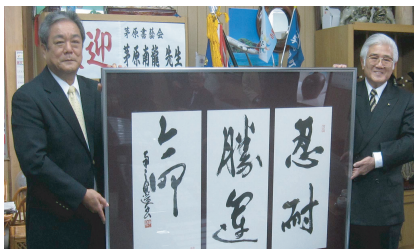 迎
茅原書藝会
茅原南龍 先生
忍耐
勝運
命